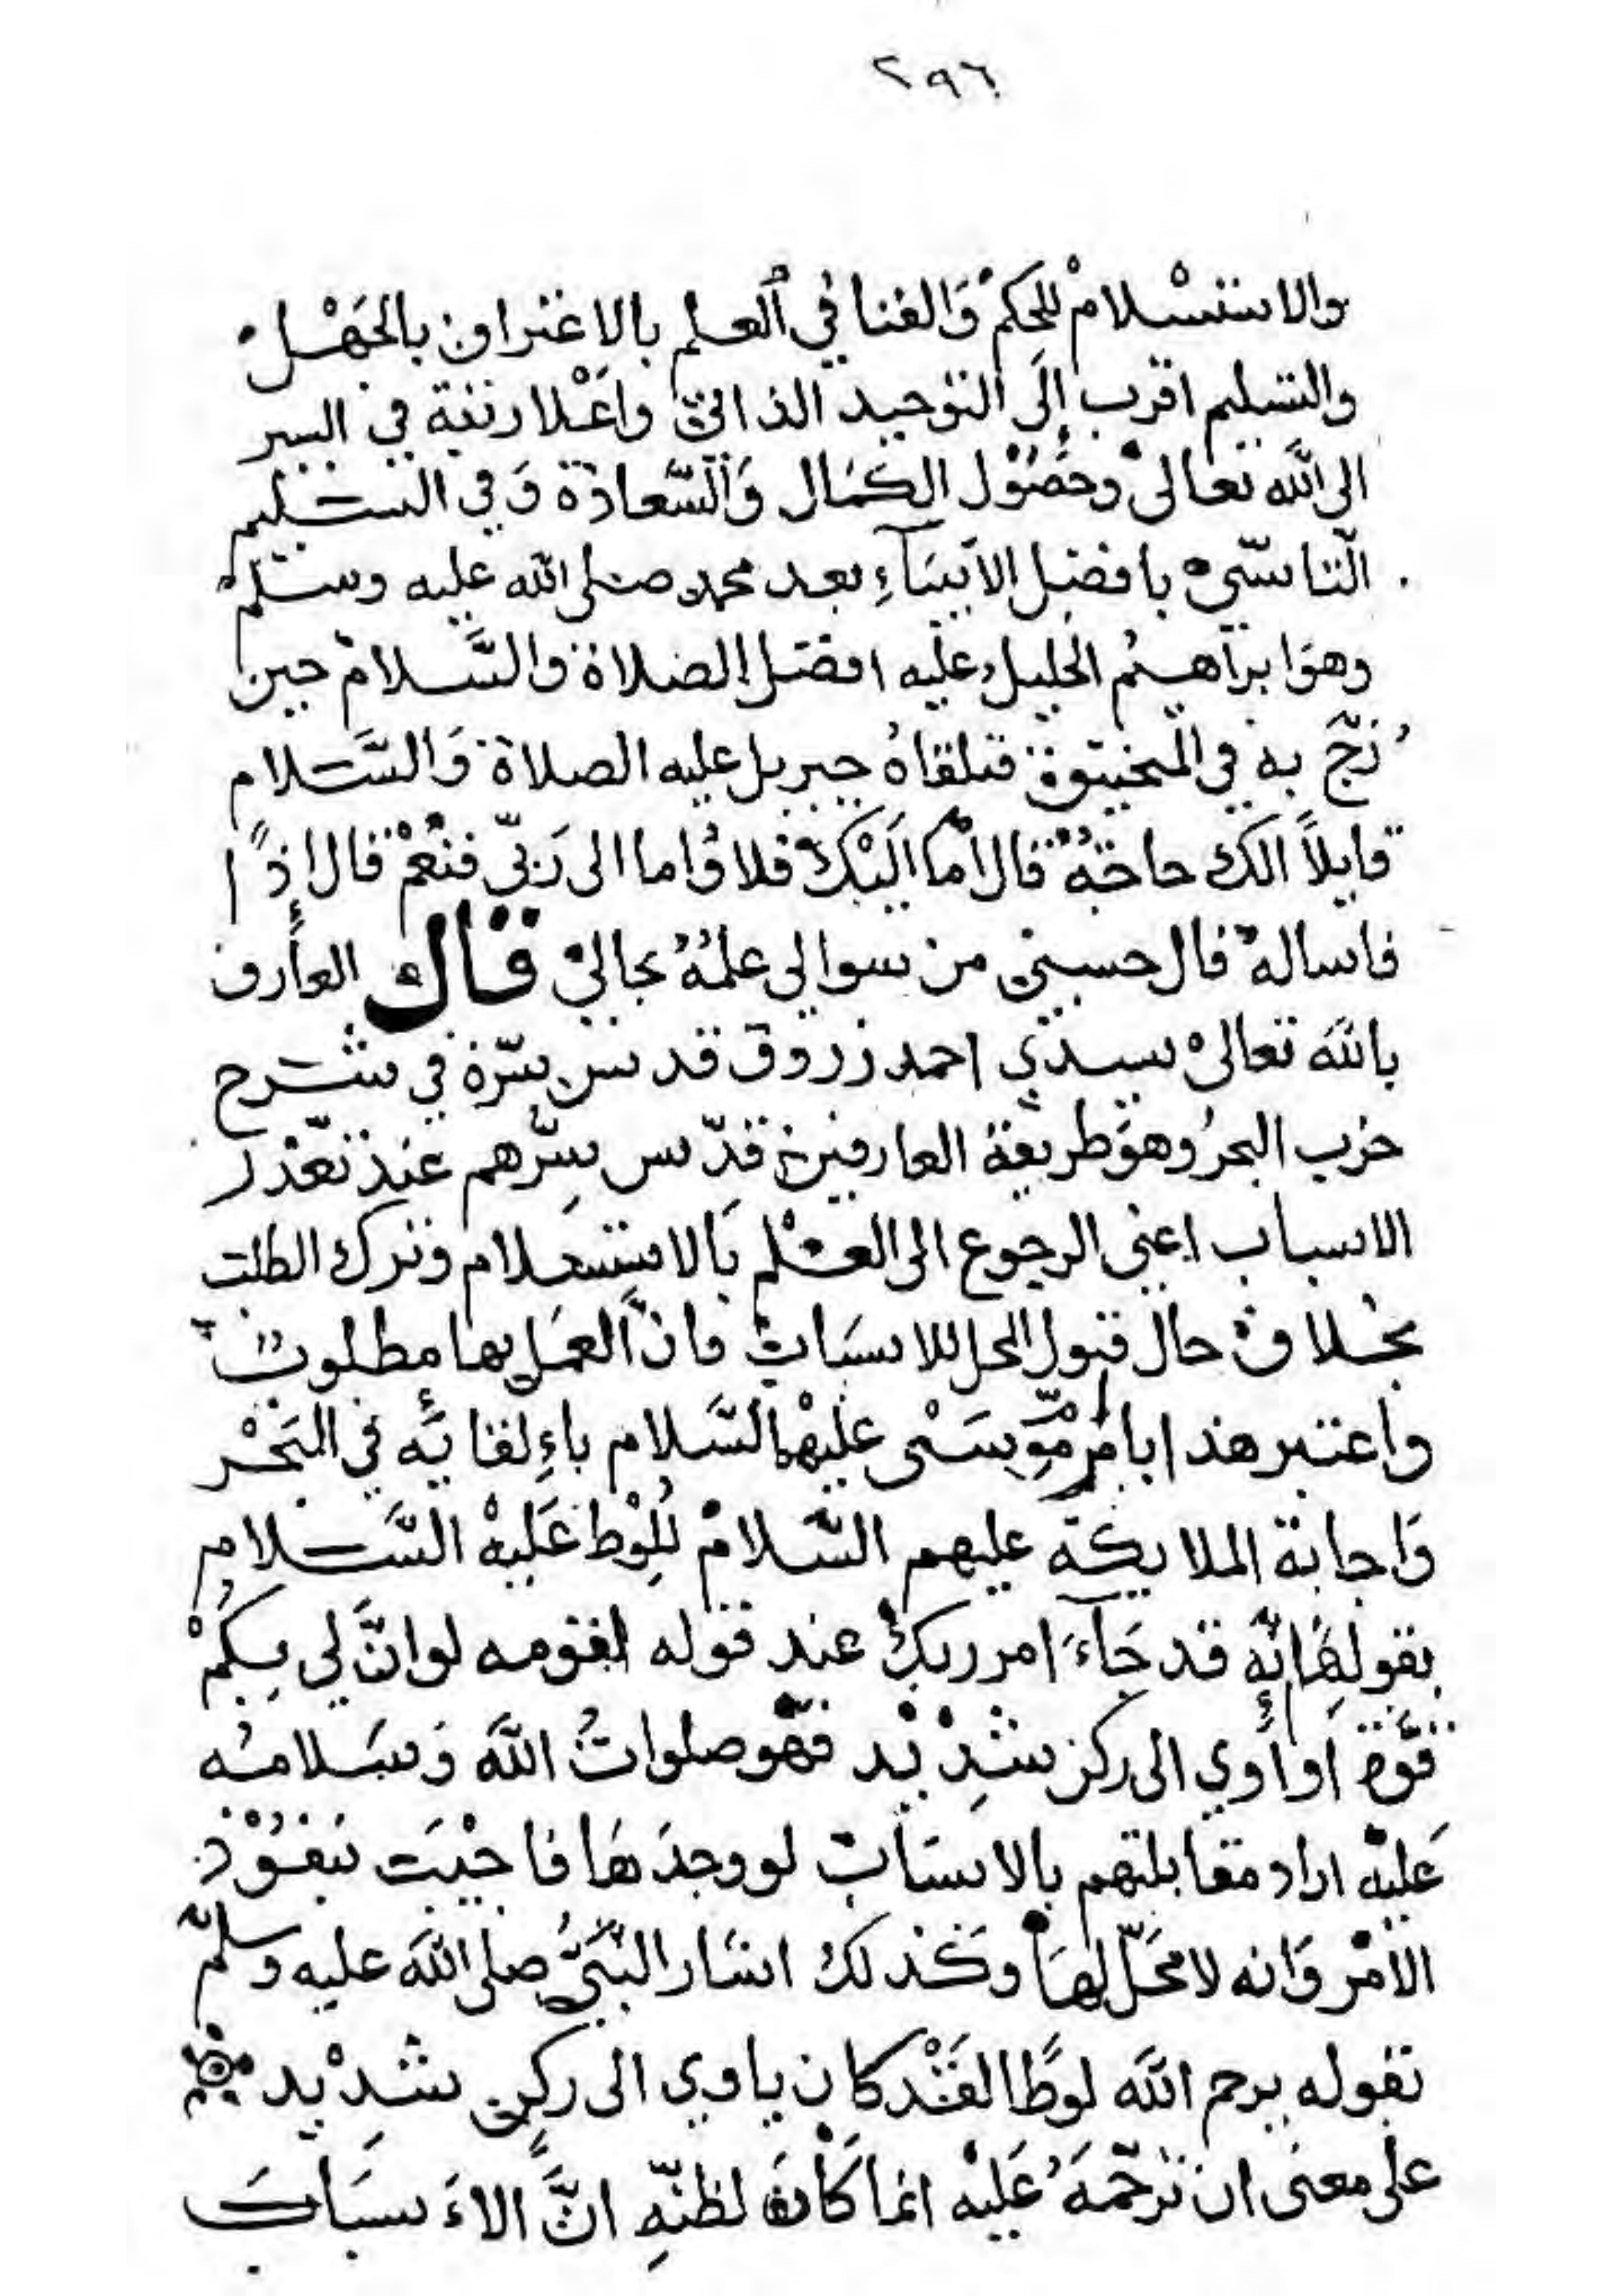 ٢٩٦
والاستسلام للحكم والفنا في العلم بالاعتراف بالجهل
والتسليم اقرب إلى التوحيد الذاتي واعلا رتبة في السير
الى الله تعالى وحصول الكمال والسعادة وفي التسليم
التاسي بافضل الانبيآء بعد محمد صلى الله عليه وسلم
وهو ابراهيم الخليل عليه افضل الصلاة والسلام حين
زج به في المنجنيق فتلقاه جبريل عليه الصلاة والسلام
قايلاً الك حاجة قال أما اليك فلا واما الى ربي فنعم قال إذًا
فاساله قال حسبي من سوالي علمه بحالي قال العارف
بالله تعالى سيدي احمد زروق قدس سره في شرح
حزب البحر وهو طريقة العارفين قدس سرهم عند تعذر
الاسباب اعني الرجوع الى العلم بالاستسلام وترك الطلب
بخلاف حال قبول المحل للاسباب فان العمل بها مطلوب
واعتبر هذا بام موسى عليهما السلام بإلقايه في البحر
واجابة الملايكة عليهم السلام للوط عليه السلام
بقولها إنه قد جآء امر ربك عند قوله لقومه لو ان لي بكم
قوة او أوي الى ركن شديد فهو صلوات الله وسلامه
عليه اراد مقابلتهم بالاسباب لو وجدها فاجيب بنفوذ
الامر وانه لا محل لها وكذلك اشار النبي صلى الله عليه وسلم
بقوله يرحم الله لوطًا لقد كان ياوي الى ركن شديد
على معنى ان ترحمه عليه انما كان لظنه ان الاسباب